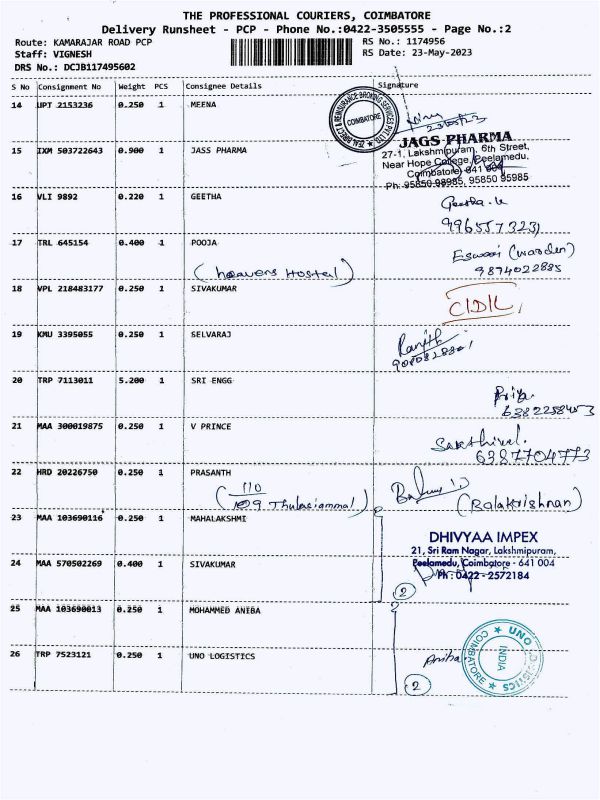 THE PROFESSIONAL COURIERS, COIMBATORE
Delivery Runsheet - PCP - Phone No.:0422-3505555 - Page No.:2
Route: KAMARAJAR ROAD PCP RS No.: 1174956
Staff: VIGNESH RS Date: 23-May-2023
DRS No.: DCJB117495602
S No Consignment No Weight PCS Consignee Details Signature
14 UPT 2153236 0.250 1 MEENA
ZEAL DIRECT & REINSURANCE BROKING SERVICES PVT LTD
COIMBATORE
JAGS PHARMA
15 IXM 503722643 0.900 1 JASS PHARMA 27-1, Lakshmipuram, 6th Street,
Near Hope College, Peelamedu,
Coimbatore 641 004
Ph: 95850 98985, 95850 95985
16 VLI 9892 0.220 1 GEETHA Geetha.
17 TRL 645154 0.400 1 POOJA Eswari (warden)
(heavens Hostel) 9894022885
18 VPL 218483177 0.250 1 SIVAKUMAR
19 KMU 3395055 0.250 1 SELVARAJ Ranjith
20 TRP 7113011 5.200 1 SRI ENGG Priya
21 MAA 300019875 0.250 1 V PRINCE Sakthivel.
6387704773
22 HRD 20226750 0.250 1 PRASANTH
(110 / 109 Thulasiammal) (Balakrishnan)
23 MAA 103690116 0.250 1 MAHALAKSHMI
DHIVYAA IMPEX
21, Sri Ram Nagar, Lakshmipuram,
24 MAA 570502269 0.400 1 SIVAKUMAR Peelamedu, Coimbatore - 641 004
Ph : 0422 - 2572184
2
25 MAA 103690013 0.250 1 MOHAMMED ANIBA
26 TRP 7523121 0.250 1 UNO LOGISTICS Anitha
UNO LOGISTICS COIMBATORE
INDIA
2